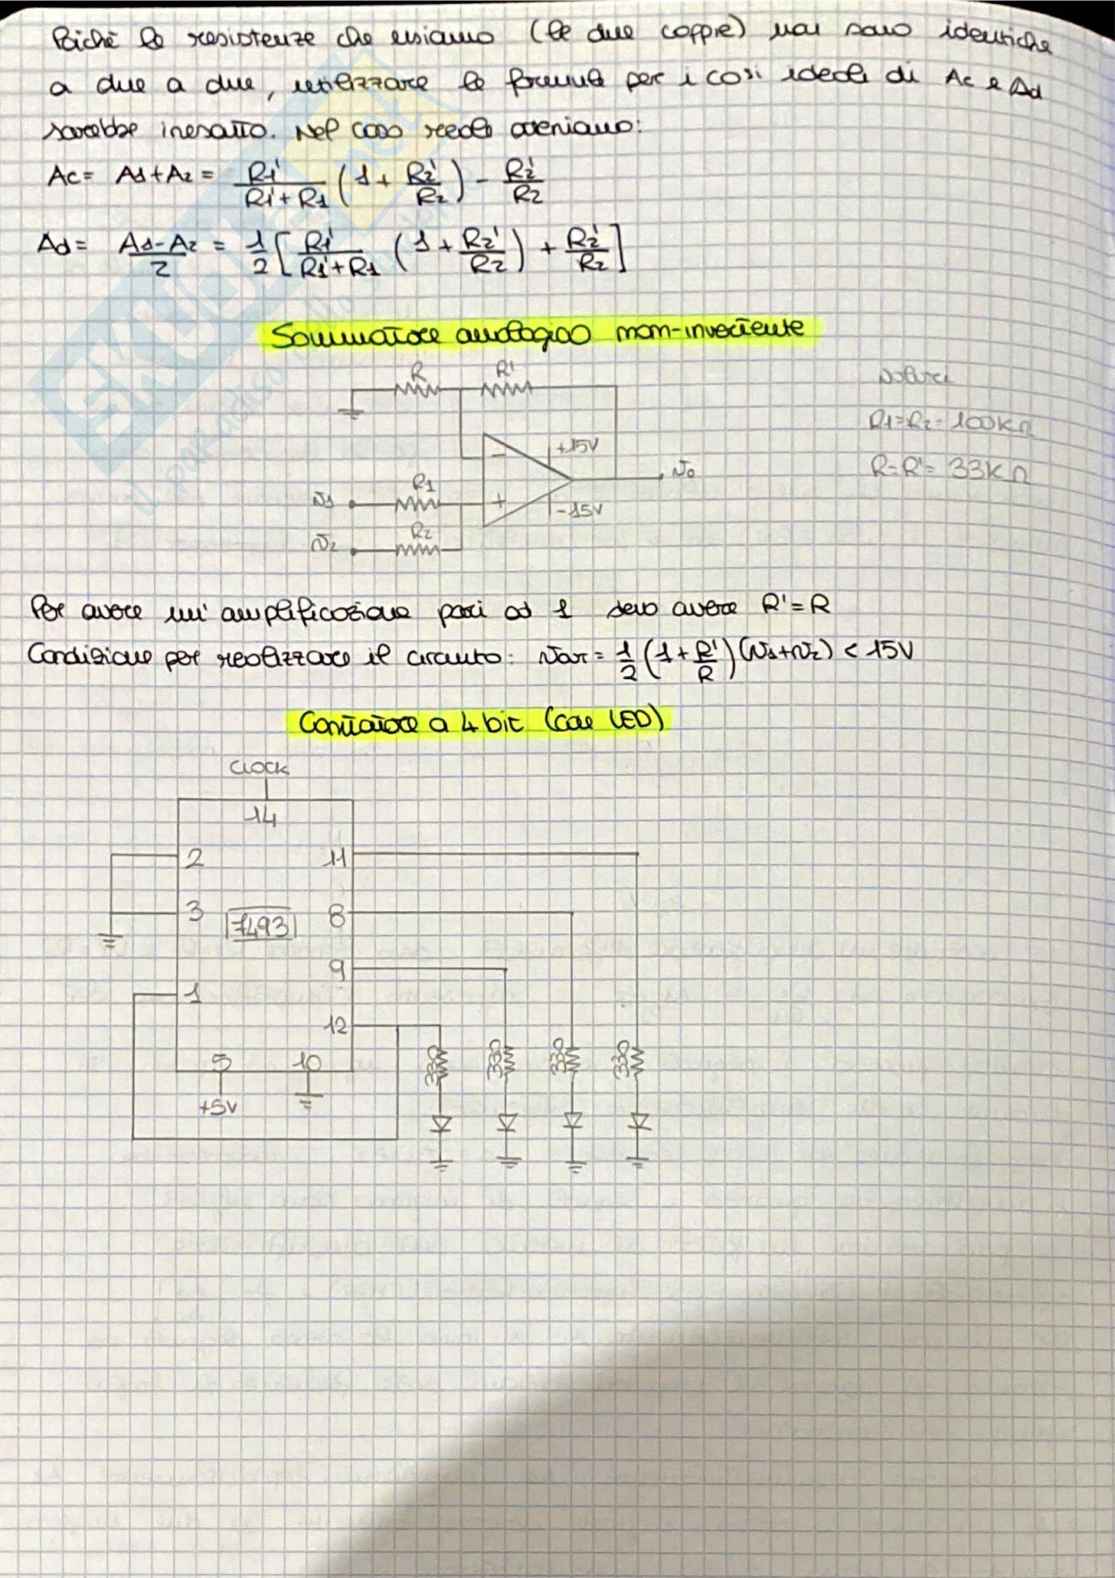 Poiché le resistenze che usiamo (le due coppie) non sono identiche
a due a due, utilizzare le formule per i casi ideali di Ac e Ad
sarebbe inesatto. Nel caso reale avremo:
Ac = A1+A2 = R1'/(R1'+R1) (1 + R2'/R2) - R2'/R2
Ad = (A1-A2)/2 = 1/2 [R1'/(R1'+R1) (1 + R2'/R2) + R2'/R2]
Sommatore analogico non-invertente
R R'
Valori
R1=R2=100kΩ
R=R'=33kΩ
- +15V
v0
v1 R1 + -15V
v2 R2
Per avere un'amplificazione pari ad 1 devo avere R'=R
Condizione per realizzare il circuito: vout = 1/2 (1+R'/R)(v1+v2) < 15V
Contatore a 4 bit (con LED)
Clock
14
2 11
3 7493 8
9
1
12
5 10
330 330 330 330
+5V
SKUOLA.net
il paradiso